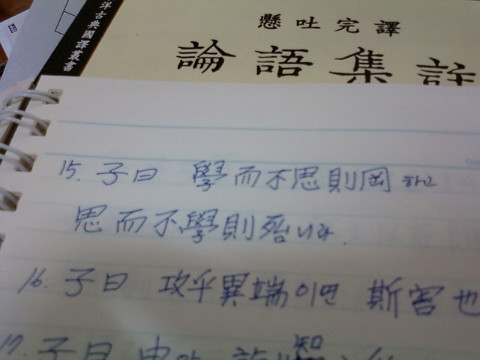 洋古典國譯叢書
懸吐完譯
論語集註
15. 子曰 學而不思則罔하고
思而不學則殆니라.
16. 子曰 攻乎異端이면 斯害也
17. 子曰 由아 誨
知